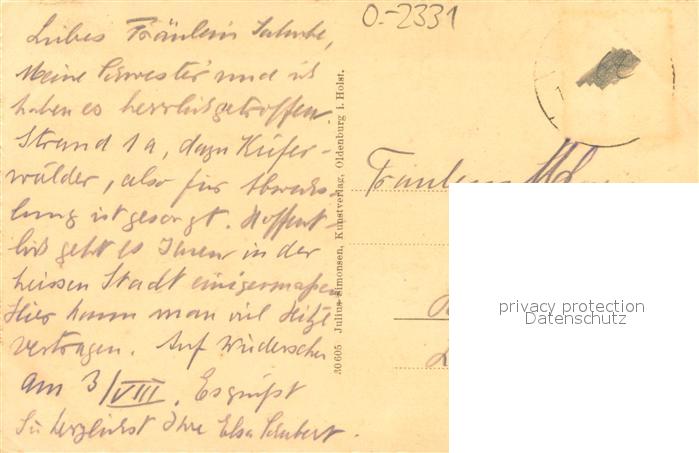 O.-2331
Liebes Fräulein
Meine Schwester und ich
haben es herrlich getroffen.
Strand 1a, dazu Kiefer-
wälder, also für Abwechs-
lung ist gesorgt. Hoffent-
lich geht es Ihnen in der
heissen Stadt einigermaßen
Hier kann man viel Hitze
vertragen. Auf Wiedersehen
am 3/VIII. Es grüßt
Sie herzlichst Ihre Elsa Schubert.
30605 Julius Simonsen, Kunstverlag, Oldenburg i. Holst.
Fräulein
privacy protection
Datenschutz